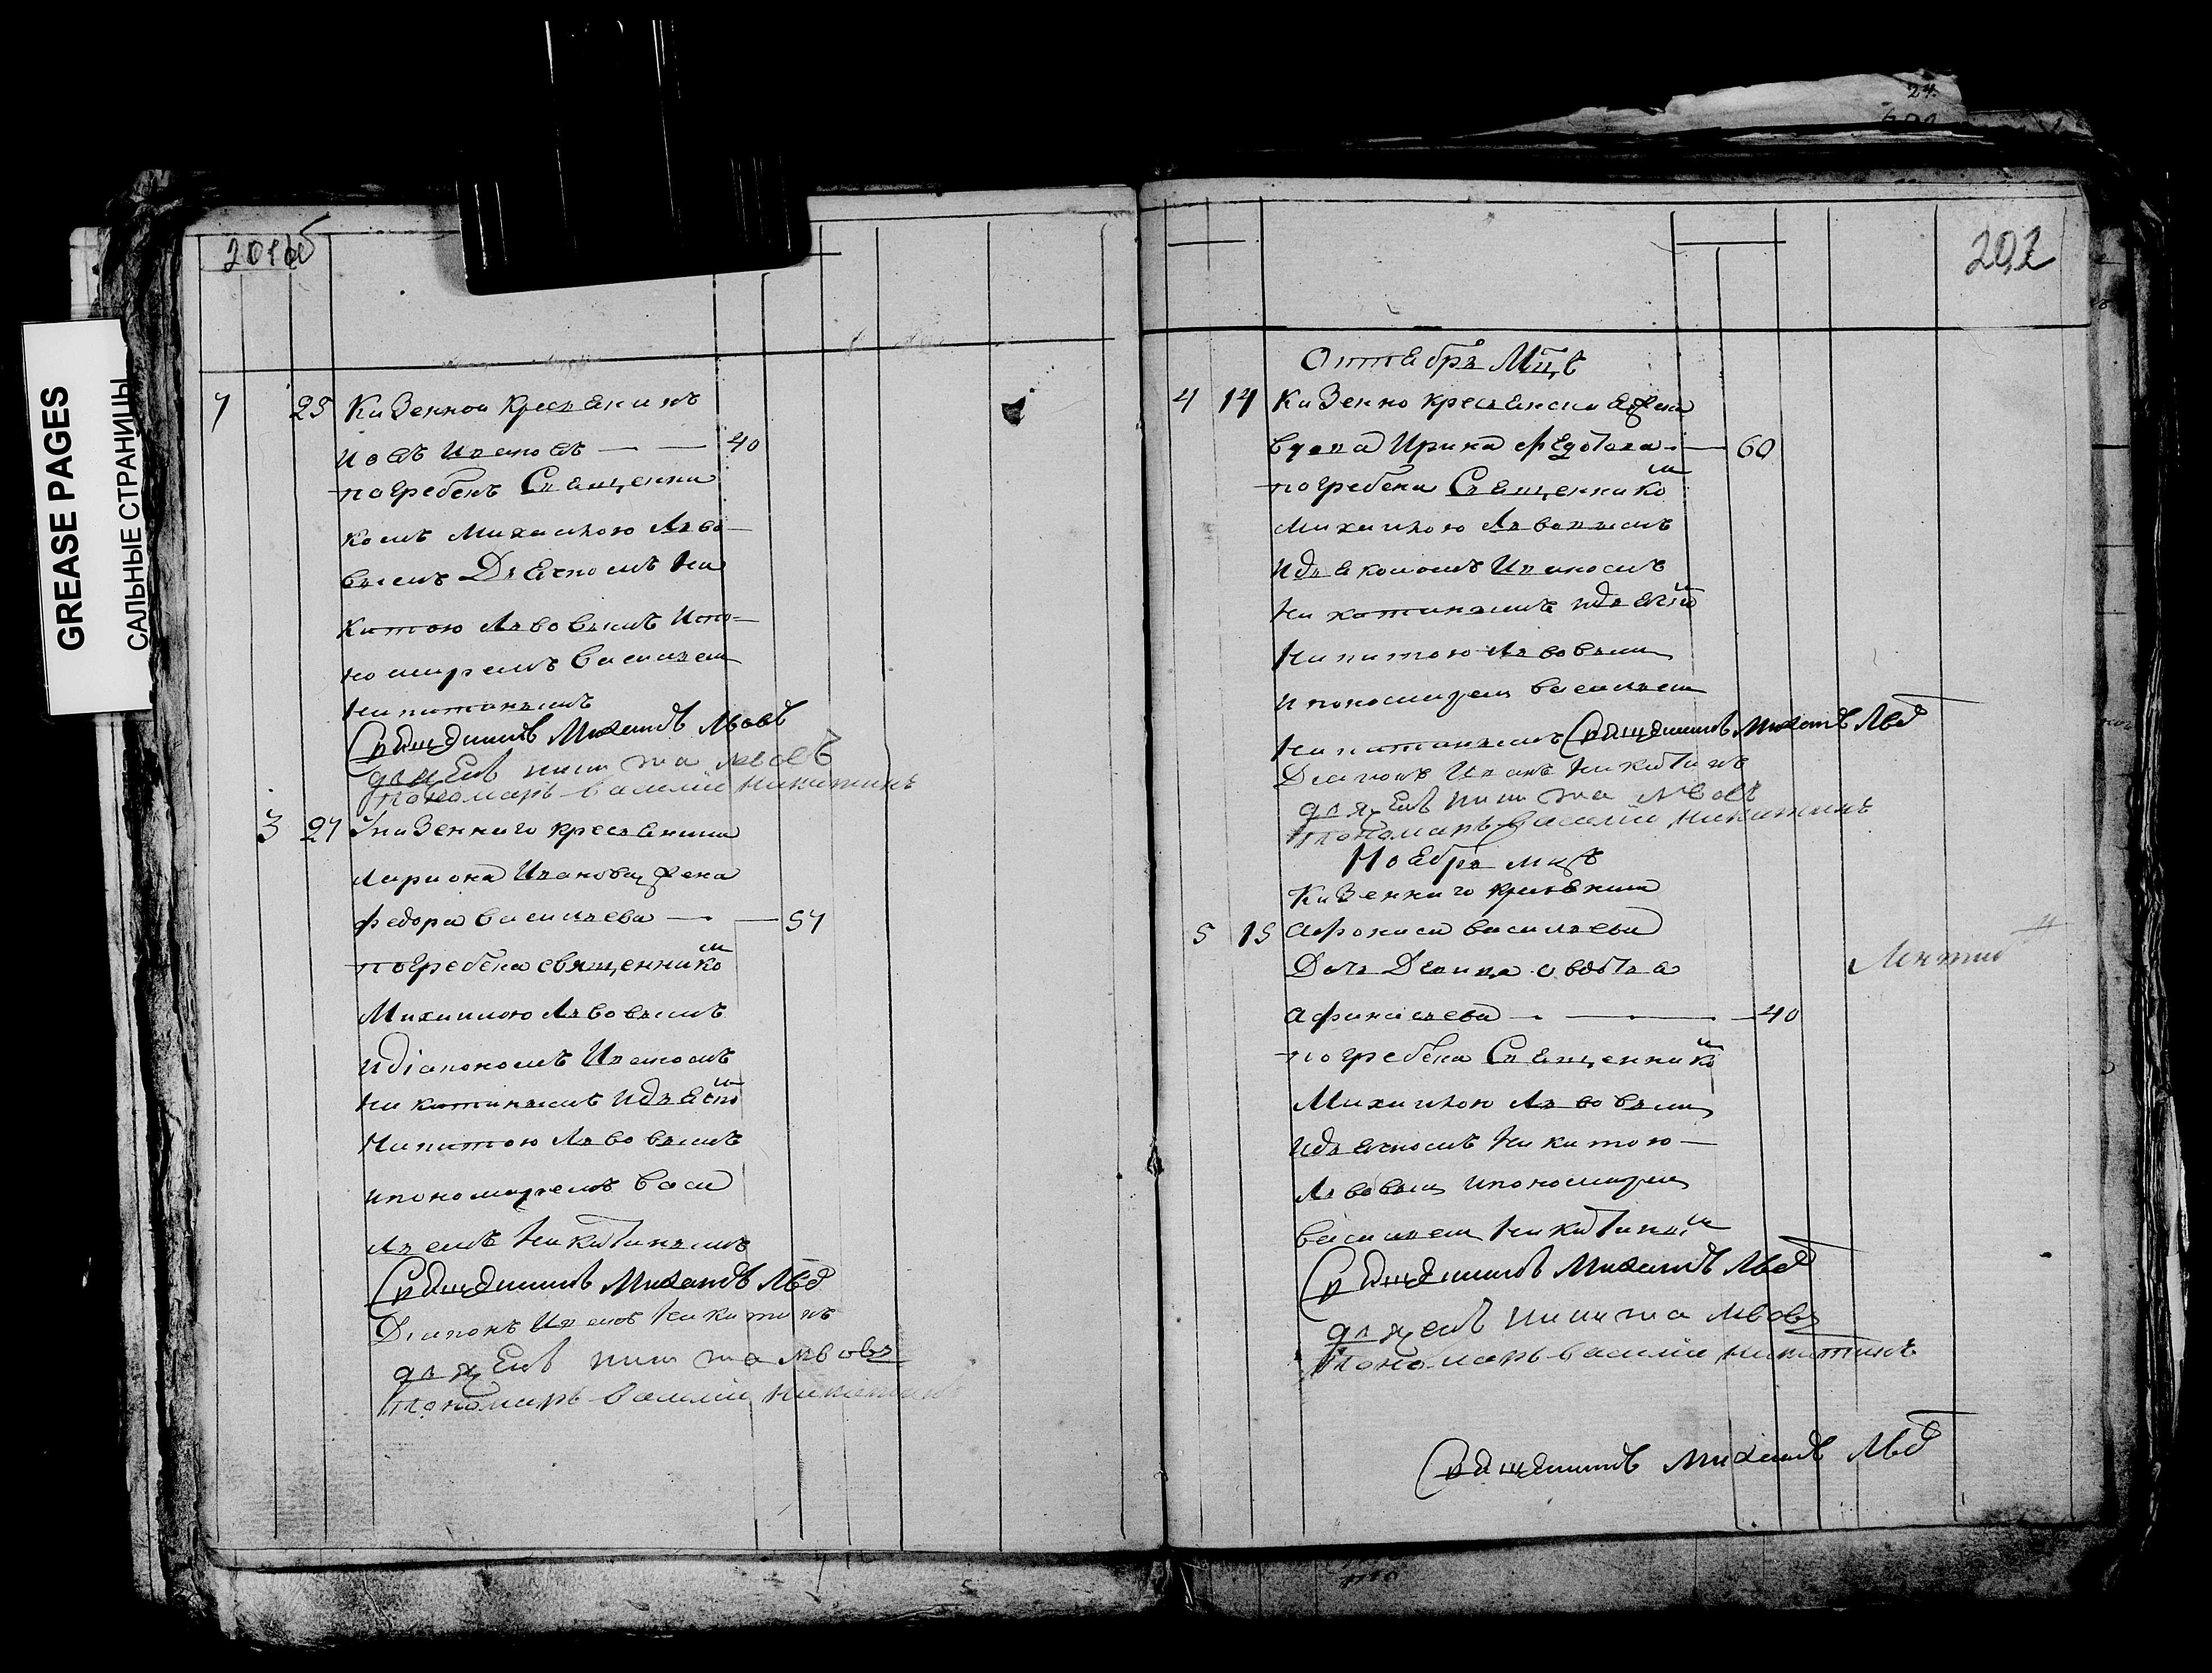 GREASE PAGES
САЛЬНЫЕ СТРАНИЦЫ
201об
7 25 Казенной крестьянинъ
Иовъ Ивановъ — — 40
погребенъ Священни
комъ Михаиломъ Льво
вымъ Дьячкомъ Ни
китою Львовымъ Ипо=
номаремъ Василем
Никитинымъ
Священникъ Михаилъ Львовъ
дьячекъ Никита Львовъ
Пономарь Василий Никитинъ
3 27 казеннаго крестьянина
Лариона Иванова жена
Федора Васильева — — 57
погребена священникомъ
Михаиломъ Львовымъ
идіакономъ Иваномъ
Никитинымъ идьячком
Никитою Львовымъ
ипономаремъ Васи
льемъ Никитинымъ
Священникъ Михаилъ Львовъ
Диаконъ Иванъ Никитинъ
дьячекъ Никита Львовъ
Пономарь Василий Никитинъ
24.
202
Октября Мцѣ
4 14 Казенно крестьянская жена
вдова Ирина Федотова — 60
погребена Священником
Михаиломъ Львовымъ
идьякономъ Иваномъ
Никитинымъ идьячком
Никитою Львовым
ипономарем Василем
Никитинымъ Священникъ Михаилъ Львовъ
Диаконъ Иванъ Никитинъ
дьячекъ Никита Львовъ
Пономарь Василий Никитинъ
Ноября мцѣ
Казеннаго крестьянина
5 15 Афонаси Васильева
Дочь Девица
Афанасьева — — 40
погребена Священником
Михаилою Львовым
идьячкомъ Никитою —
Львовым ипономарем
Василем Никитиным
Священникъ Михаилъ Львовъ
дьячекъ Никита Львовъ
Пономарь Василий Никитинъ
Священникъ Михаилъ Львовъ